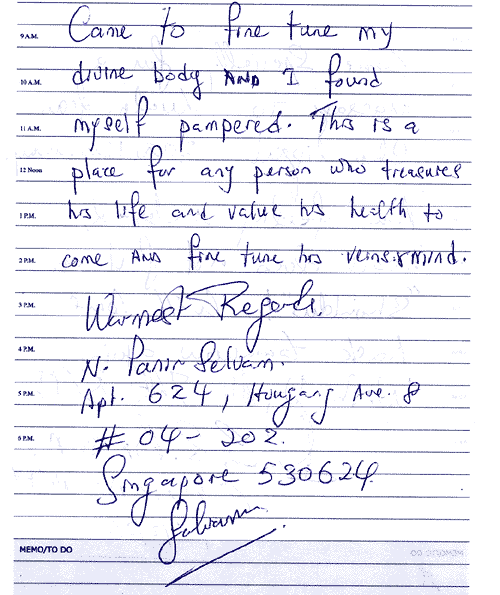 9 A.M. Came to fine tune my
10 A.M. divine body AND I found
11 A.M. myself pampered. This is a
12 Noon place for any person who treasures
1 P.M. his life and value his health to
2 P.M. come AND fine tune his veins & mind.
3 P.M. Warmest Regards,
4 P.M. N. Panir Selvam.
5 P.M. Apt. 624, Hougang Ave. 8
6 P.M. # 04-202.
Singapore 530624
MEMO/TO DO